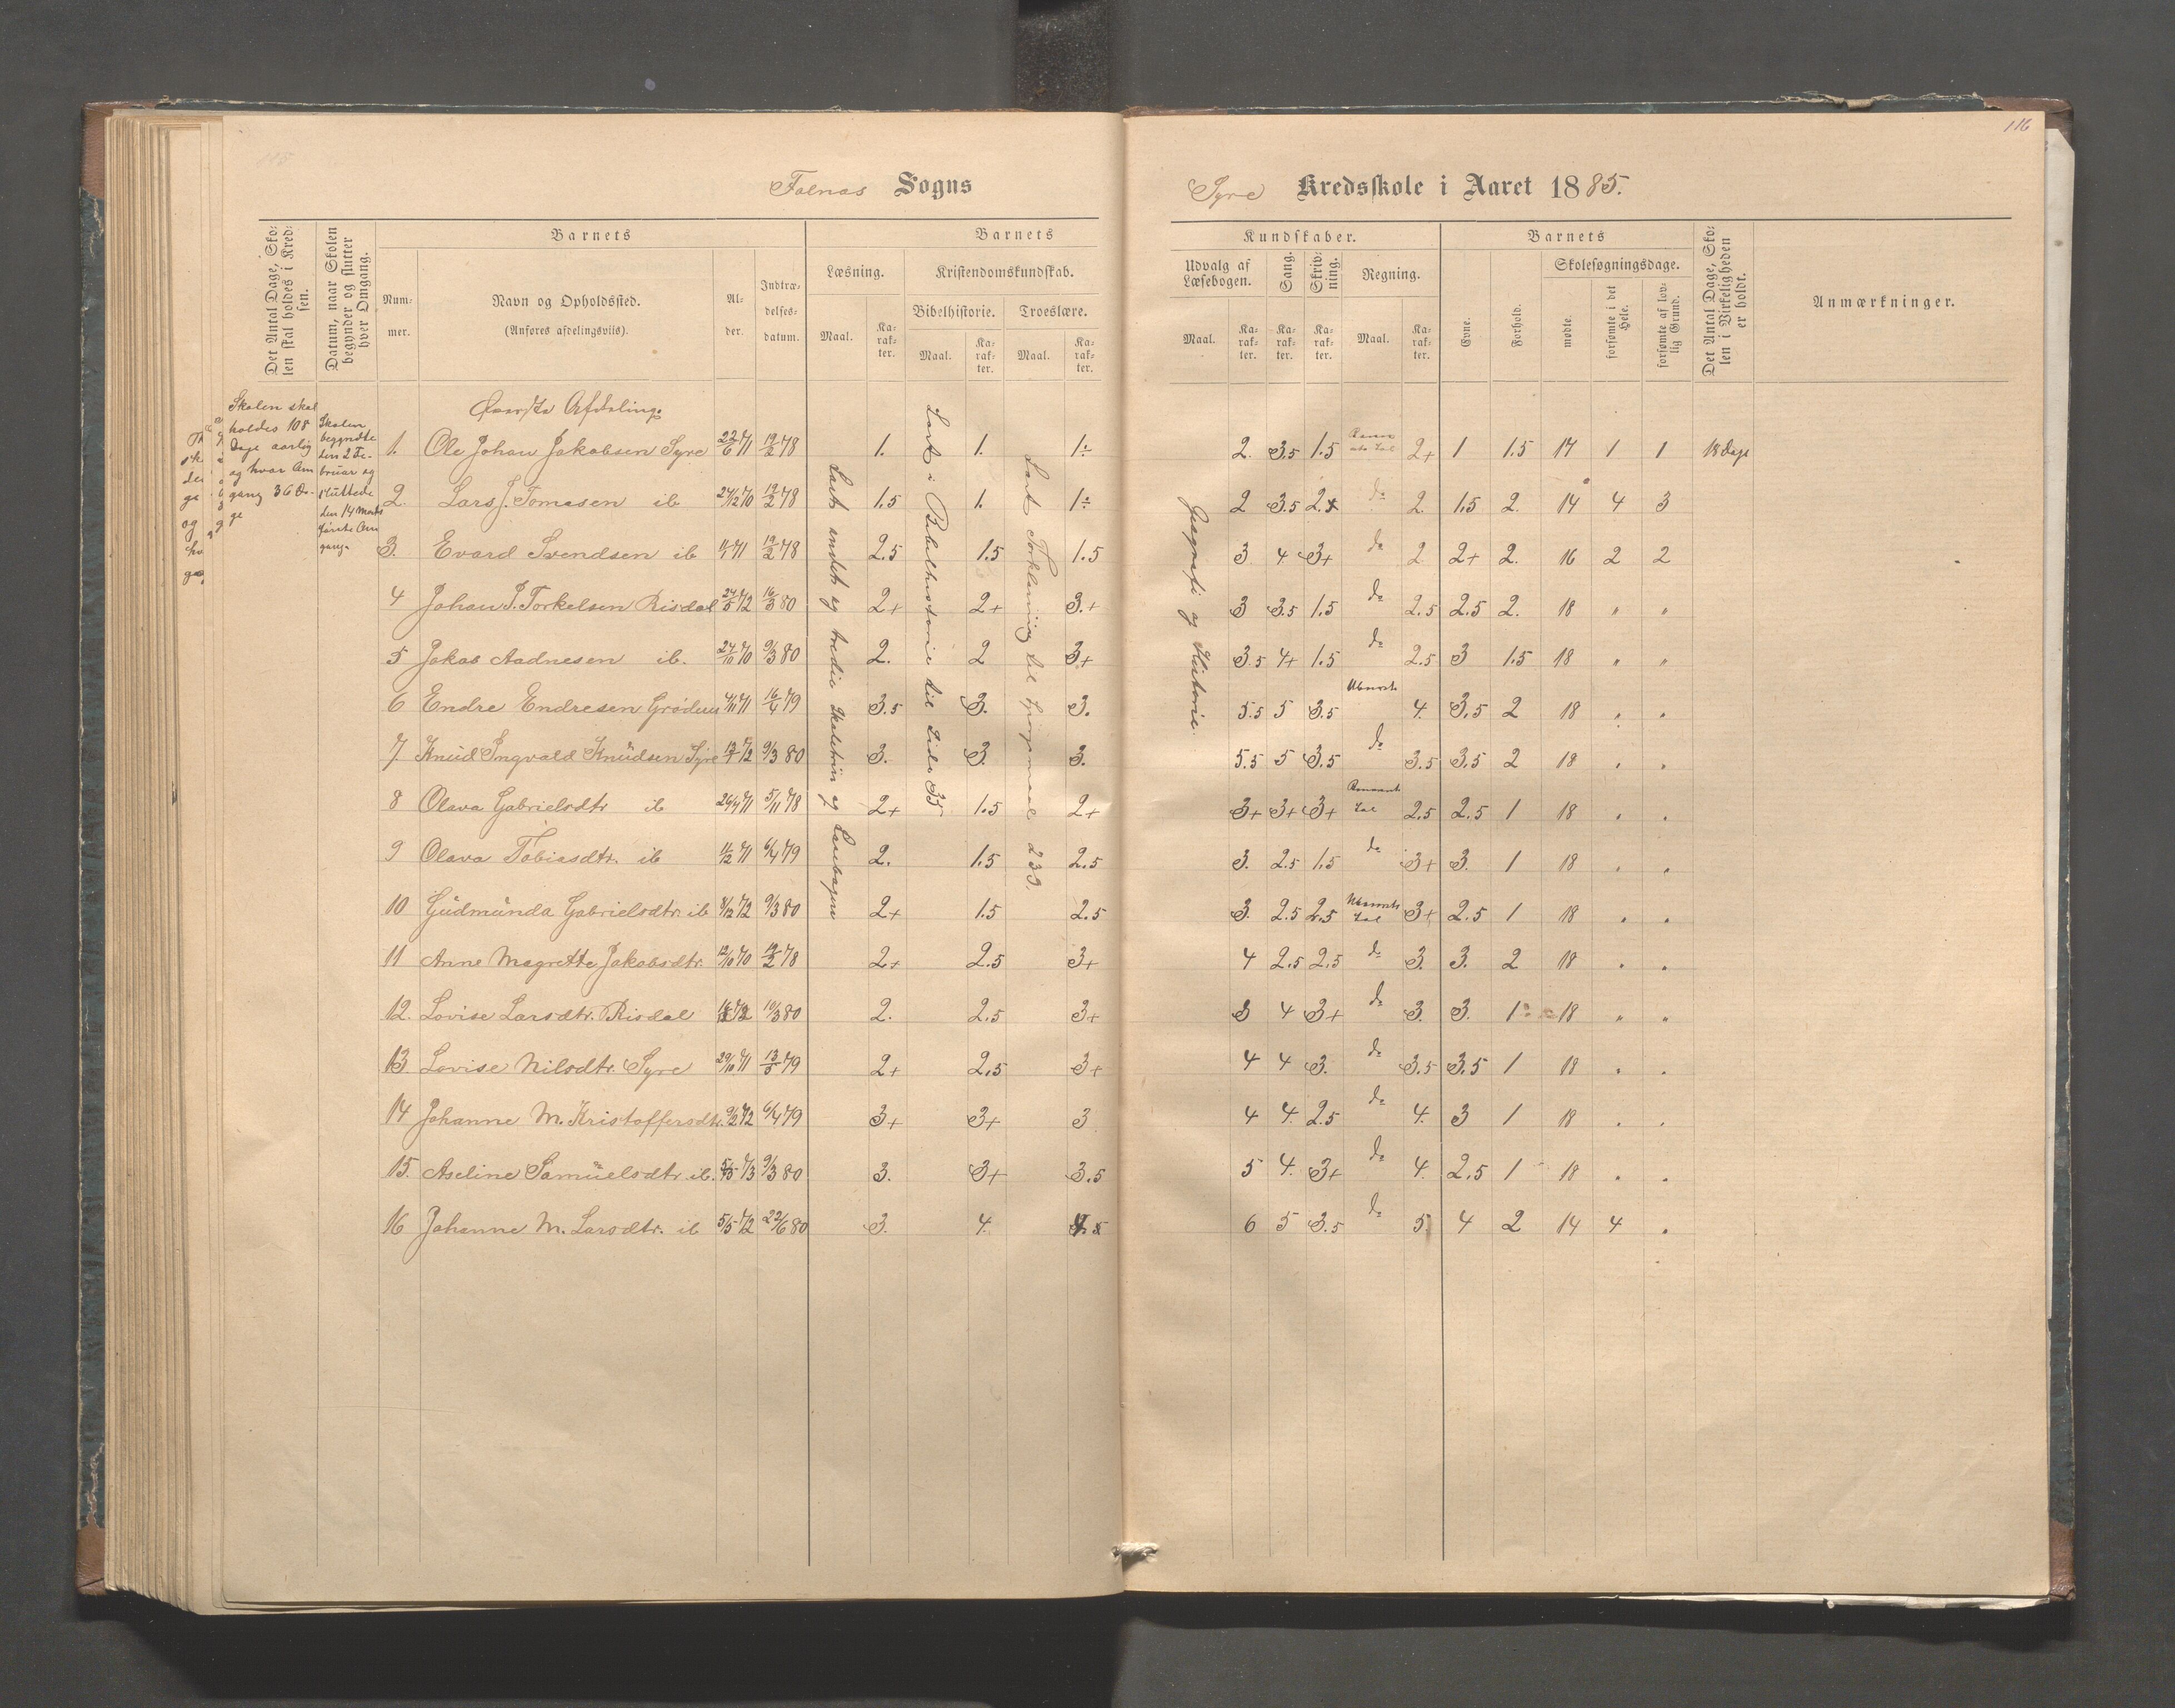 116
Falnes Sogns
Syre Kredsskole i Aaret 1885.
Det Antal Dage, Skolen skal holdes i Kredsen.
Datum, naar Skolen begynder og slutter hver Omgang.
Barnets
Nummer.
Navn og Opholdssted.
(Anføres afdelingsviis).
Alder.
Indtrædelsesdatum.
Barnets
Læsning.
Kristendomskundskab.
Bibelhistorie. Troeslære.
Maal. Karakter. Maal. Karakter. Maal. Karakter.
Kundskaber.
Udvalg af Læsebogen. Sang. Skrivning. Regning.
Maal. Karakter. Karakter. Karakter. Maal. Karakter.
Barnets
Evne. Forhold.
Skolesøgningsdage.
mødte. forsømte i det Hele. forsømte af lovlig Grund.
Det Antal Dage, Skolen i Virkeligheden er holdt.
Anmærkninger.
Skolen skal
holdes 108
Dage aarlig
og hvar Om
gang 36 Da-
ge
Skolen
begyndte
den 2 Fe-
bruar og
sluttede
den 14 Marts
første Om
gang
Læst andet og tredie Skoletrin og Læsebogen
Læst i Bibelhistorie til Side 35
Læst Forklaring til Spørgsmaal 239.
Geografi og Historie
Afdeling.
1. Ole Johan Jakobsen Syre 22/6 71 19/2 78 1. 1. 1÷ 2. 3.5 1.5 2+ 1 1.5 17 1 1 18 dage
2. Lars J. Tomasen ib 24/12 70 19/2 78 1.5 1. 1÷ 2 3.5 2+ do 2. 1.5 2. 14 4 3
3. Evard Svendsen ib 71 19/2 78 2.5 1.5 1.5 3 4 3+ do 2 2+ 2. 16 2 2
4 Johan J. Torkelsen Risdal 24/5 72 16/3 80 2+ 2+ 3.+ 3 3.5 1.5 do 2.5 2.5 2. 18 " "
5 Jakob Aadnesen ib. 24/10 70 9/3 80 2. 2 3+ 3.5 4+ 1.5 do 2.5 3 1.5 18 " "
6 Endre Endresen Grødem 4/11 71 16/4 79 3.5 3. 3. 5.5 5 3.5 4. 3.5 2 18 " "
7 Knud Ingvald Knudsen Syre 13/7 72 9/3 80 3. 3. 3. 5.5 5 3.5 do 3.5 3.5 2 18 " "
8 Olava Gabrielsdtr ib 26/4 71 5/11 78 2+ 1.5 2+ 3+ 3+ 3+ 2.5 2.5 1 18 " "
9 Olava Tobiasdtr. ib 11/12 71 6/4 79 2. 1.5 2.5 3. 2.5 1.5 do 3+ 3. 1 18 " "
10 Gudmunda Gabrielsdtr. ib 8/12 72 9/3 80 2+ 1.5 2.5 3. 2.5 2.5 3+ 2.5 1 18 " "
11 Anne Magrette Jakobsdtr. 12/10 70 19/2 78 2+ 2.5 3+ 4 2.5 2.5 do 3. 3. 2 18 " "
12. Lovise Larsdtr. Risdal 10/3 80 2. 2.5 3+ 3 4 3+ do 3. 3. 1 18 " "
13. Lovise Nilsdtr. Syre 29/10 71 13/5 79 2+ 2.5 3+ 4 4 3. do 3.5 3.5 1 18 " "
14 Johanne M. Kristoffersdtr. 9/2 72 6/4 79 3+ 3+ 3 4 4. 2.5 do 4. 3 1 18 " "
15. Aseline Samuelsdtr. ib. 73 9/3 80 3. 3+ 3.5 5 4. 3+ do 4. 2.5 1 18 " "
16 Johanne M. Larsdtr. ib 5/5 72 22/6 80 3. 4. 6 5 3.5 do 5. 4 2 14 4 "